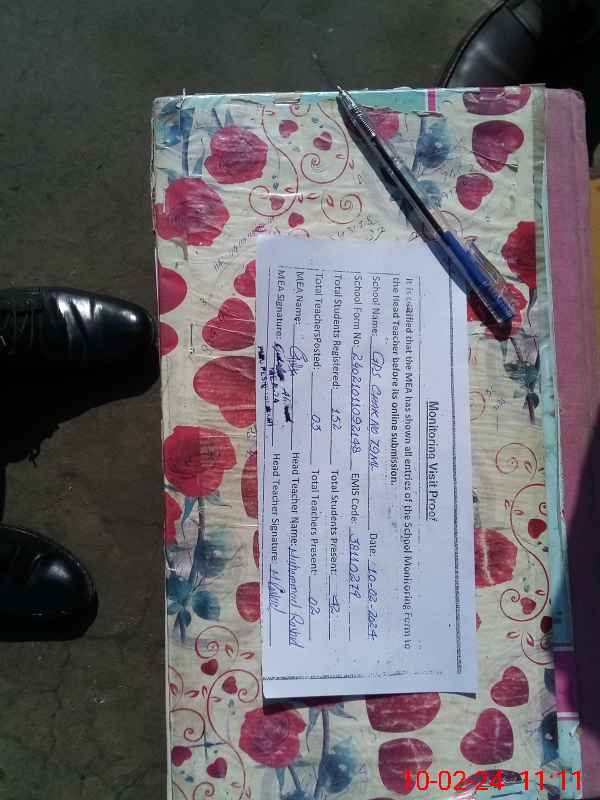 Monitoring Visit Proof
It is certified that the MEA has shown all entries of the School Monitoring Form to
the Head Teacher before its online submission.
School Name: GPS CHAK NO 79ML Date: 10-02-2024
School Form No: 29021011092148 EMIS Code: 38110279
Total Students Registered: 152 Total Students Present: 42
Total TeachersPosted: 03 Total Teachers Present: 02
MEA Name: Head Teacher Name: Muhammad Rashid
MEA Signature: Head Teacher Signature:
10-02-24 11:11